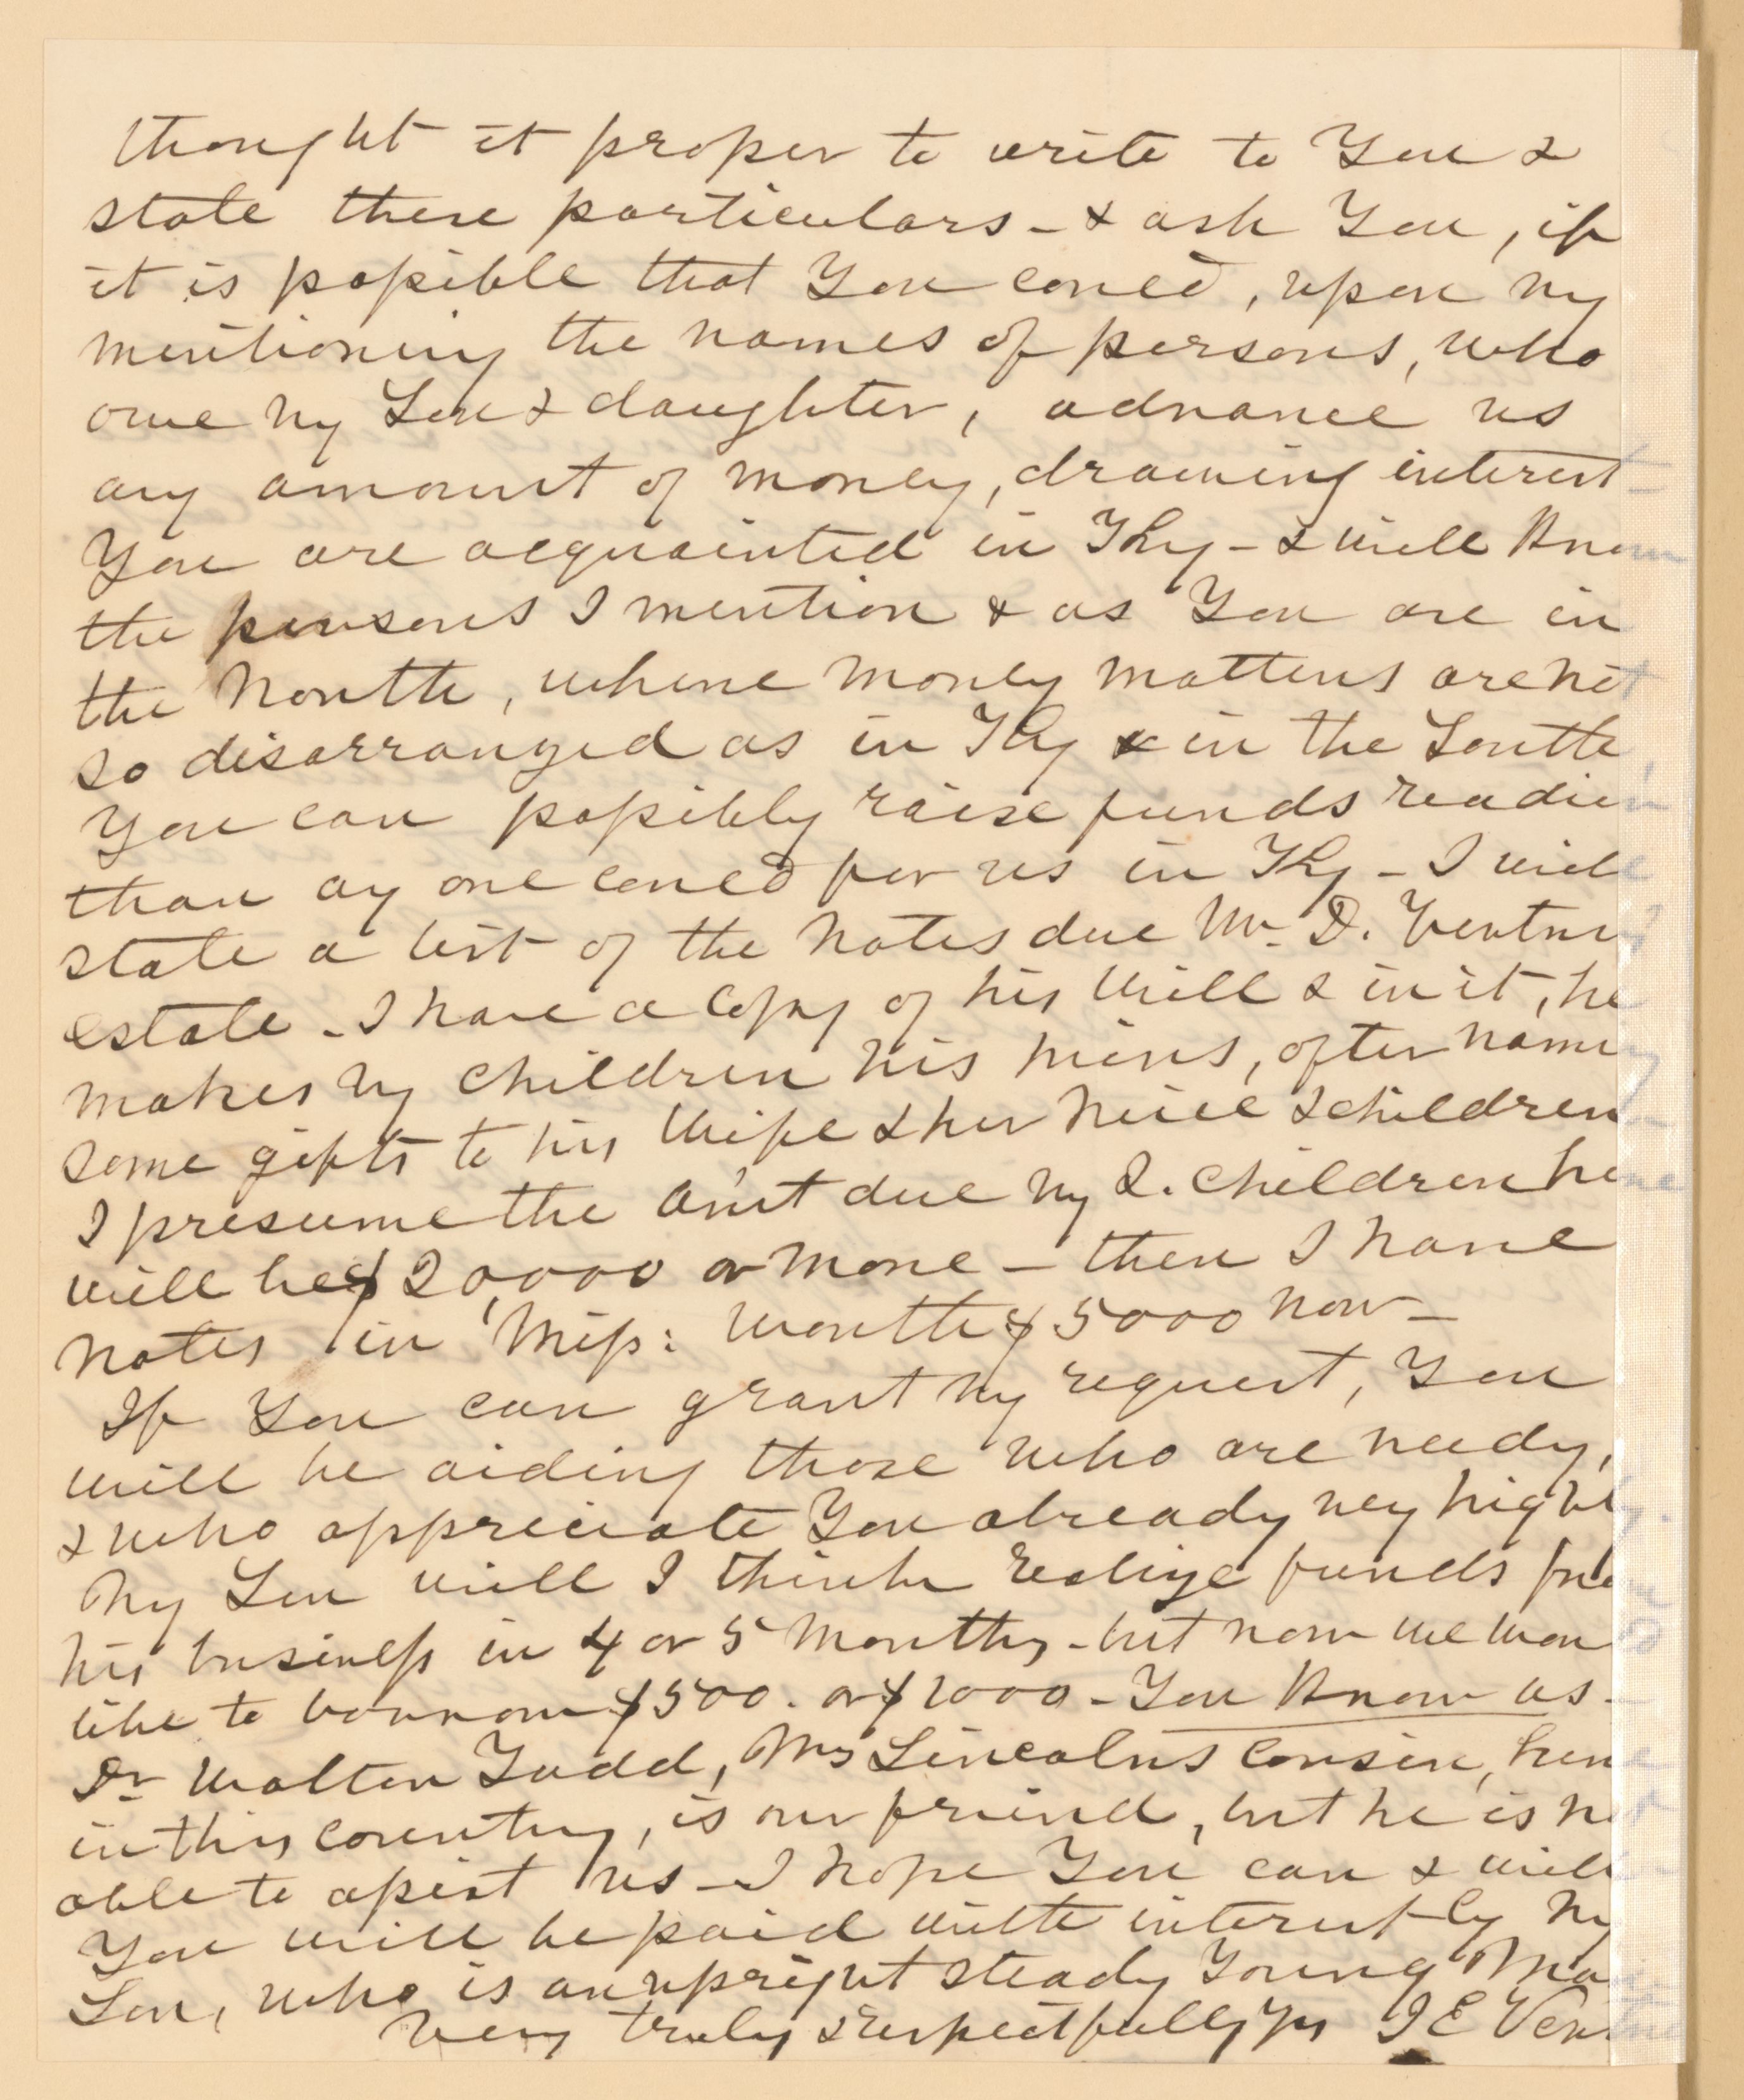 thought it proper to write to You &
state these particulars - & ask You, if
it is possible that You could, upon my
mentioning the names of persons, who
owe my Son & daughter, advance us
any amount of money, drawing interest -
You are acquainted in Ky - & will Know
the persons I mention & as You are in
the North, where money matters are not
so disarranged as in Ky & in the South,
You can possibly raise funds readier
than any one could for us in Ky - I will
state a list of the notes due Mr. D. Ventress
estate - I have a Copy of his Will & in it, he
makes my children his heirs, after naming
some gifts to his Wife & her niece & children
I presume the Am't due my 2. children here
will be $20,000 or more - then I have
notes in Miss: worth $5000 now -
If You can grant my request, You
will be aiding those who are needy,
& who appreciate You already very highly.
My Son will I think realize funds from
his business in 4 or 5 months, - but now we would
like to borrow $500. or $1000 - You Know us -
Dr Walton Todd, Mrs Lincoln's Cousin, here
in this country, is our friend, but he is not
able to assist us - I hope You can & will -
You will be paid with interest by my
Son, who is an upright steady Young Man
Very truly & respectfully Yrs